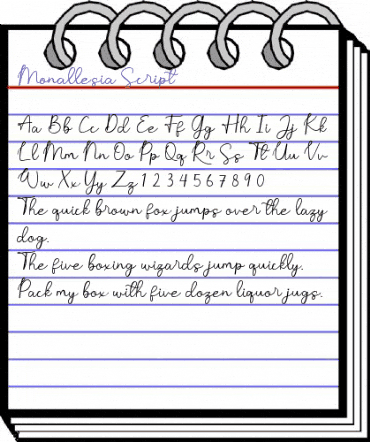 Monallesia Script
Aa Bb Cc Dd Ee Ff Gg Hh Ii Jj Kk
Ll Mm Nn Oo Pp Qq Rr Ss Tt Uu Vv
Ww Xx Yy Zz 1 2 3 4 5 6 7 8 9 0
The quick brown fox jumps over the lazy
dog.
The five boxing wizards jump quickly.
Pack my box with five dozen liquor jugs.